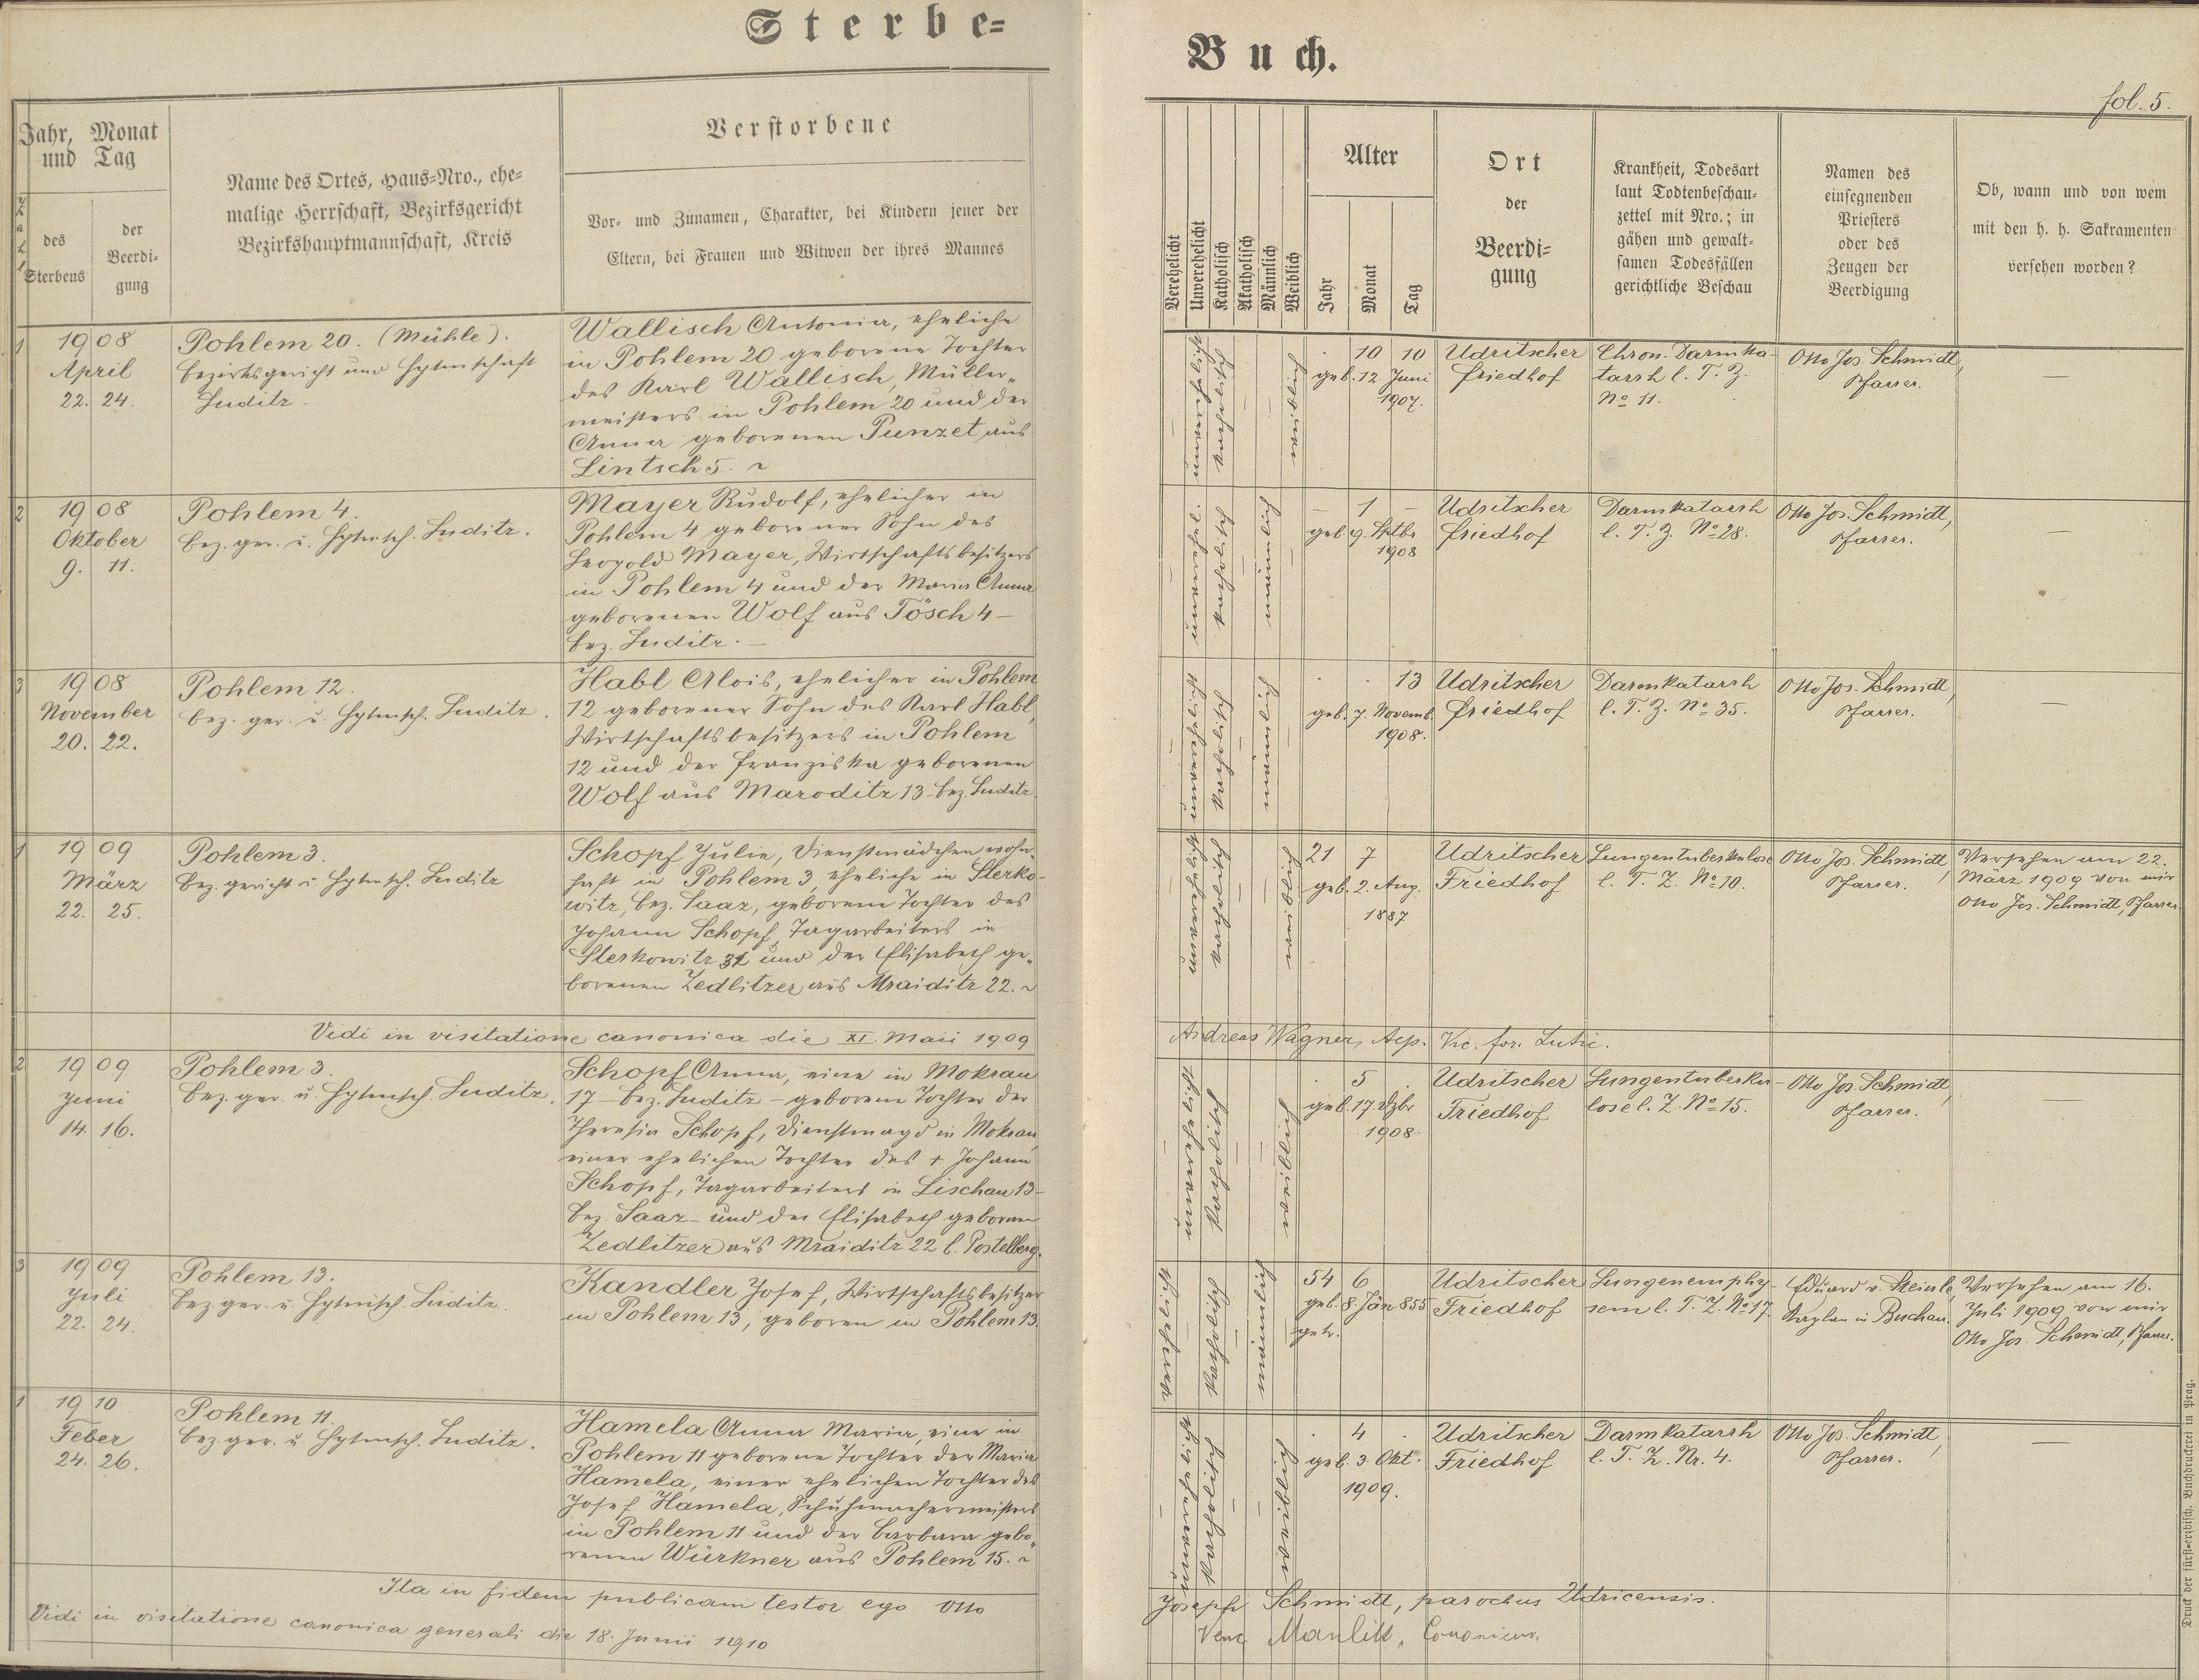 Sterbe=
Buch.
fol. 5.
Jahr, Monat
und Tag
Zahl
des
Sterbens
der
Beerdi-
gung
Name des Ortes, Haus-Nro., ehe-
malige Herrschaft, Bezirksgericht
Bezirkshauptmannschaft, Kreis
Verstorbene
Vor- und Zunamen, Charakter, bei Kindern jener der
Eltern, bei Frauen und Witwen der ihres Mannes
Verehelicht
Unverehelicht
Katholisch
Akatholisch
Männlich
Weiblich
Alter
Jahr
Monat
Tag
Ort
der
Beerdi-
gung
Krankheit, Todesart
laut Todtenbeschau-
zettel mit Nro.; in
gähen und gewalt-
samen Todesfällen
gerichtliche Beschau
Namen des
einsegnenden
Priesters
oder des
Zeugen der
Beerdigung
Ob, wann und von wem
mit den h. h. Sakramenten
versehen worden?
1
1908
April
22. 24.
Pohlem 20. (Mühle).
Bezirksgericht und Hptmschaft
Luditz.
Wallisch Antonia, eheliche
in Pohlem 20 geborene Tochter
des Karl Wallisch, Müller„
meisters in Pohlem 20 und der
Anna geborenen Punzet aus
Lintsch 5.
unverehelicht
katholisch
weiblich
10 10
geb. 12 Juni
1907.
Udritscher
Friedhof
Chron. Darmka-
tarrh l. T. Z.
No 11.
Otto Jos. Schmidt,
Pfarrer.
—
2
1908
Oktober
9. 11.
Pohlem 4.
Bez. ger. u. Hptmsch. Luditz.
Mayer Rudolf, ehelicher in
Pohlem 4 geborener Sohn des
Leopold Mayer, Wirtschaftsbesitzers
in Pohlem 4 und der Maria Anna
geborenen Wolf aus Tösch 4 –
Bez. Luditz. –
katholisch
männlich
– 1 –
geb. 9. Sptbr
1908
Udritscher
Friedhof
Darmkatarrh
l. T. Z. No 28.
Otto Jos. Schmidt,
Pfarrer.
—
3
1908
November
20. 22.
Pohlem 12.
Bez. ger. u. Hptmsch. Luditz.
Habl Alois, ehelicher in Pohlem
12 geborener Sohn des Karl Habl,
Wirtschaftsbesitzers in Pohlem
12 und der Franziska geborenen
Wolf aus Maroditz 13 – Bez. Luditz
unverehelicht
katholisch
männlich
13
geb. 7. Novemb.
1908.
Udritscher
Friedhof
Darmkatarrh
l. T. Z. No 35.
Otto Jos. Schmidt,
Pfarrer.
—
1
1909
März
22. 25.
Pohlem 3.
Bez. gericht u. Hptmsch. Luditz
Schopf Julie, Dienstmädchen wohn-
haft in Pohlem 3, eheliche in Sterko-
witz, Bez. Saaz, geborene Tochter des
Johann Schopf, Tagarbeiters in
Sterkowitz und der Elisabeth ge„
borenen Zedlitzer aus Mraiditz 22.
unverehelicht
katholisch
weiblich
21 7
geb. 2. Aug.
1887
Udritscher
Friedhof
Lungentuberkulose
l. T. Z. No 10.
Otto Jos. Schmidt,
Pfarrer.
Versehen am 22.
März 1909 von mir
Otto Jos. Schmidt, Pfarrer
Vidi in visitatione canonica die XI. Maii 1909
Andreas Wagner, Aep. Vic. for. Lutic.
2
1909
Juni
14. 16.
Pohlem 3.
Bez. ger. u. Hptmsch. Luditz.
Schopf Anna, eine in Mokrau
17 – Bez. Luditz – geborene Tochter der
Theresia Schopf, Dienstmagd in Mokrau,
einer ehelichen Tochter des + Johann
Schopf, Tagarbeiters in Lischau 13 –
Bez. Saaz – und der Elisabeth geborenen
Zedlitzer aus Mraiditz 22 b. Postelberg.
unverehelicht
katholisch
weiblich
. 5 .
geb. 17. Dzbr
1908
Udritscher
Friedhof
Lungentuberku-
lose l. Z. No 15.
Otto Jos. Schmidt,
Pfarrer.
—
3
1909
Juli
22. 24.
Pohlem 13.
Bez. ger. u. Hptmsch. Luditz.
Kandler Josef, Wirtschaftsbesitzer
in Pohlem 13, geboren in Pohlem 13.
verehelicht
katholisch
männlich
54 6
geb. 8. Jän. 855
getr.
Udritscher
Friedhof
Lungenemphy-
sem l. T. Z. No 17.
Eduard v. Steinle,
Kaplan in Buchau.
Versehen am 16.
Juli 1909 von mir
Otto Jos. Schmidt, Pfarrer.
1
1910
Feber
24. 26.
Pohlem 11.
Bez. ger. u. Hptmsch. Luditz.
Hamela Anna Maria, eine in
Pohlem 11 geborene Tochter der Maria
Hamela, einer ehelichen Tochter des
Josef Hamela, Schuhmachermeisters
in Pohlem 11 und der Barbara gebo„
renen Würkner aus Pohlem 15.
unverehelicht
katholisch
weiblich
. 4 .
geb. 3. Okt.
1909.
Udritscher
Friedhof
Darmkatarrh
l. T. Z. Nr. 4.
Otto Jos. Schmidt,
Pfarrer.
—
Ita in fidem publicam testor ego Otto
Josephs Schmidt, parochus Udricensis.
Vidi in visitatione canonica generali die 18. Junii 1910
Venc. Canonicus.
Druck der fürst-erzbisch. Buchdruckerei in Prag.